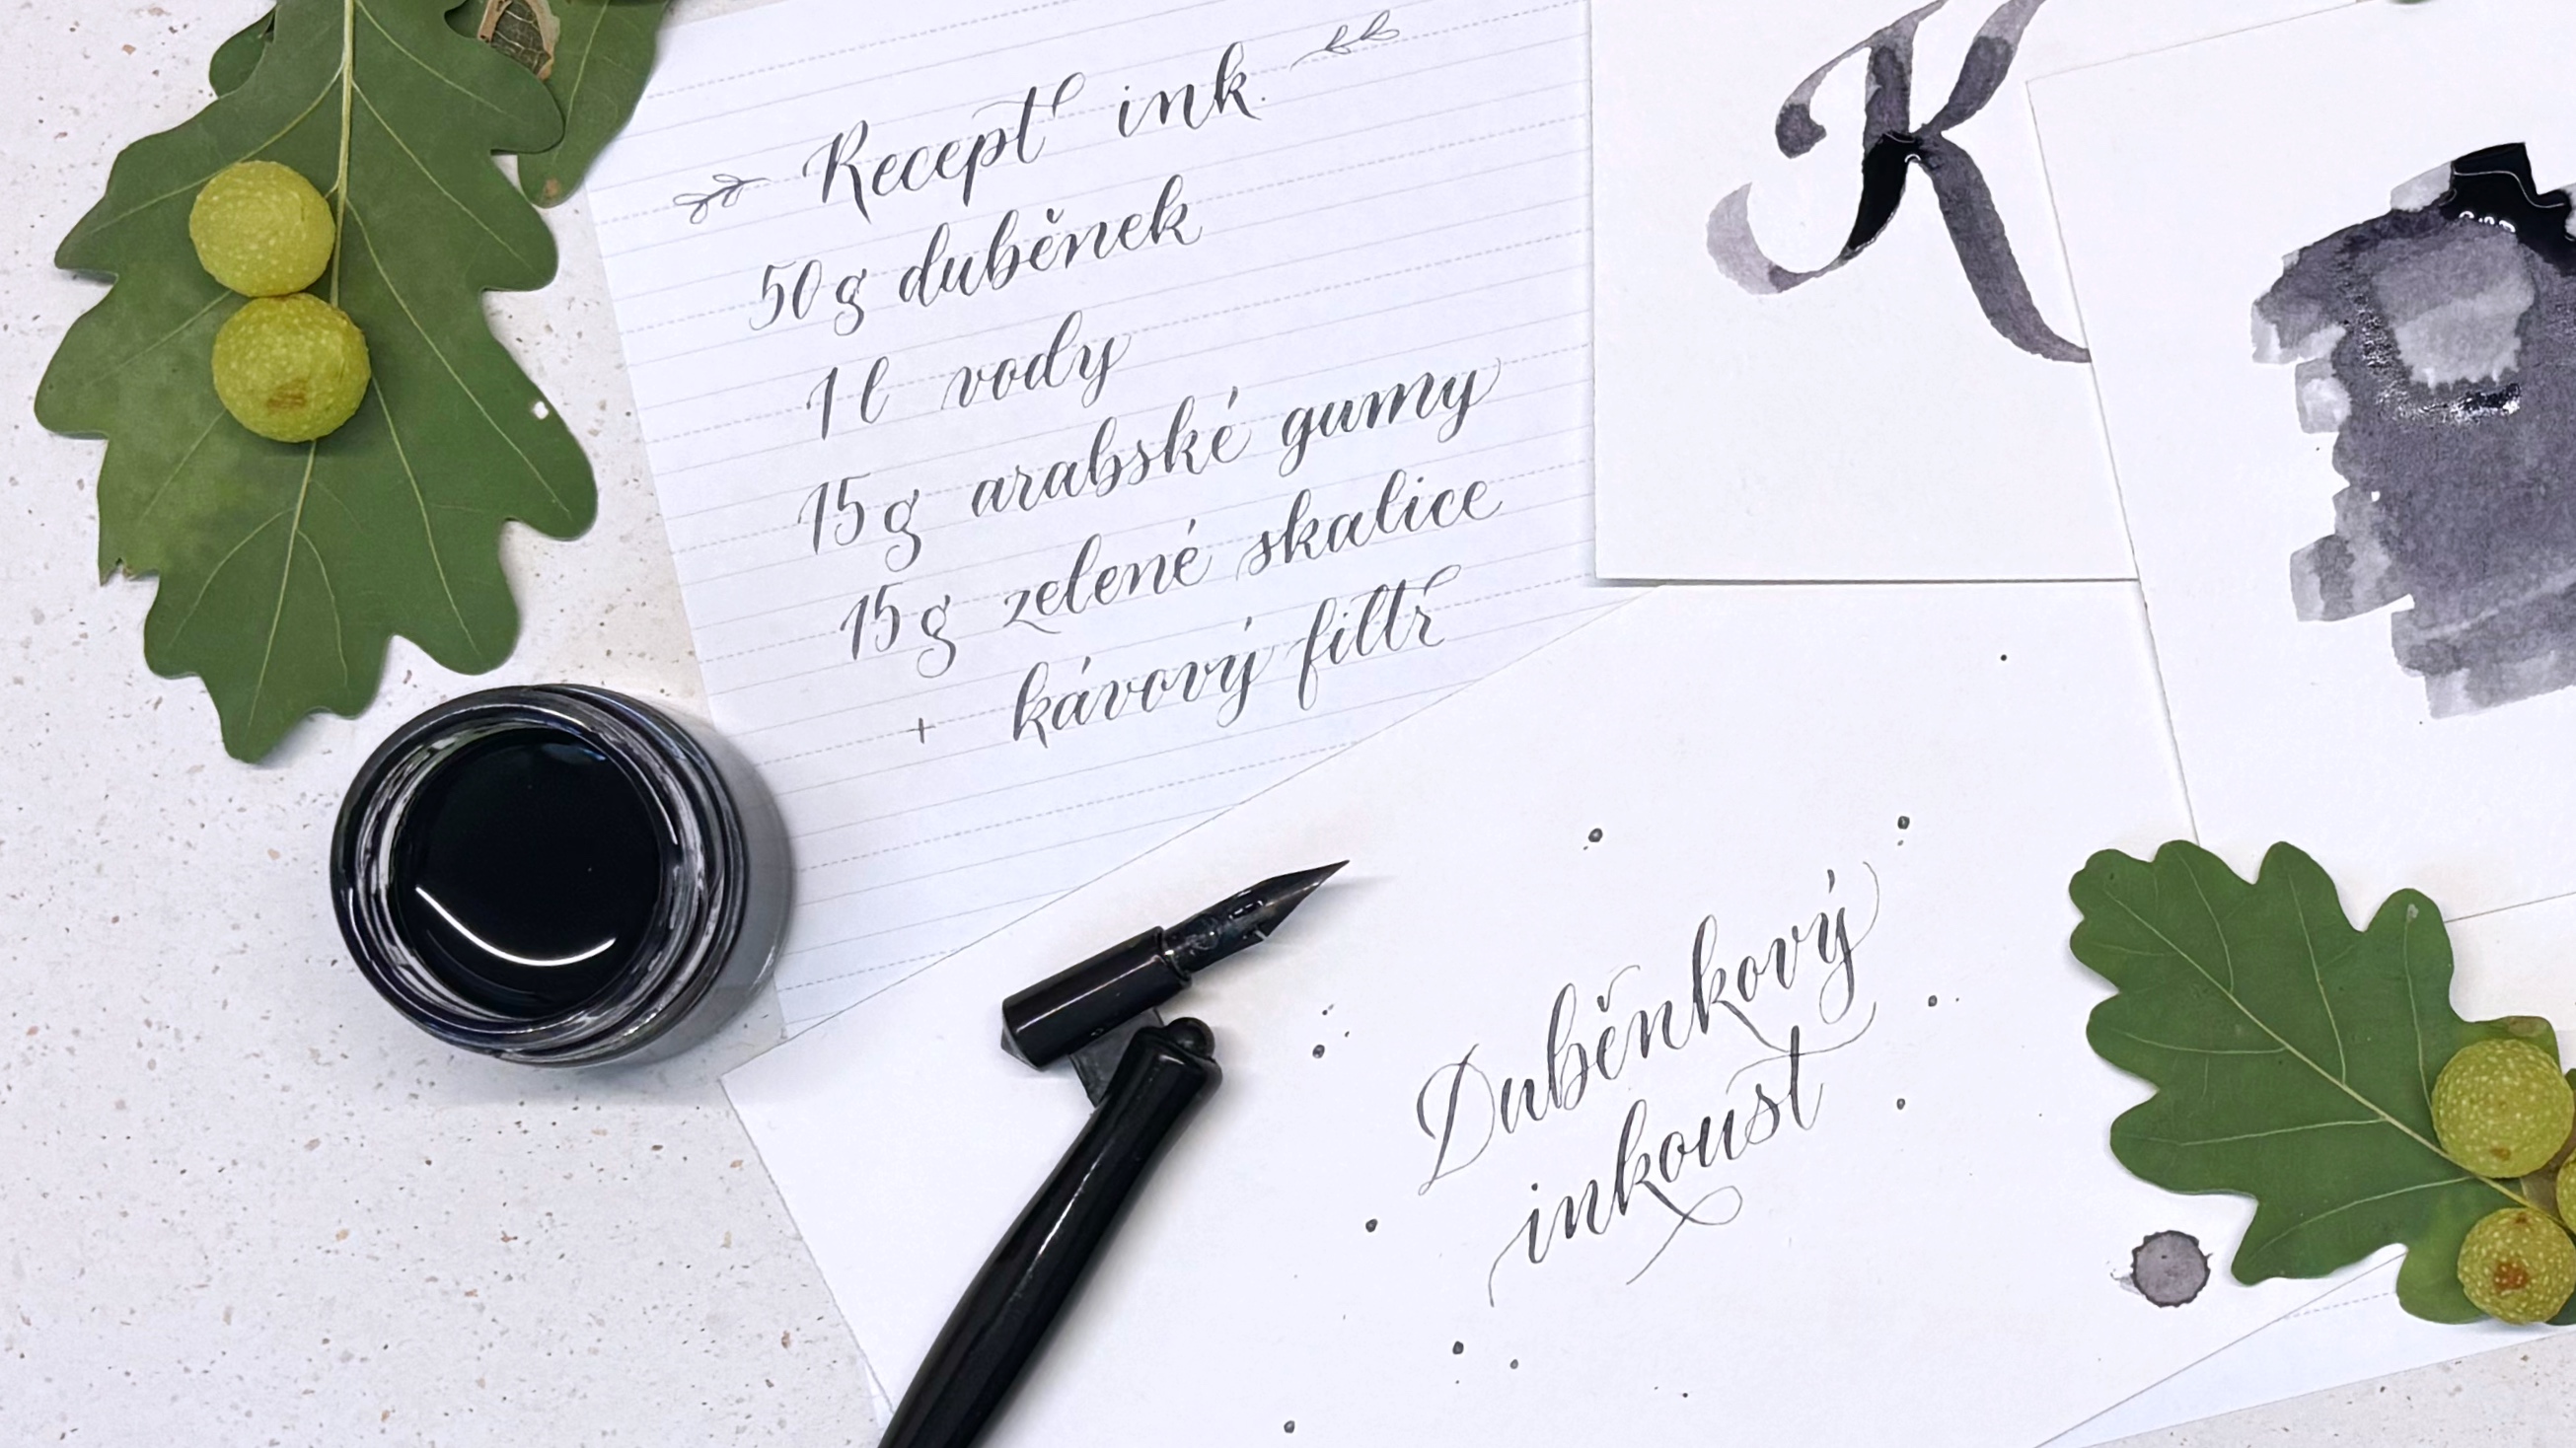 Recept ink.
50g duběnek
1l vody
15g arabské gumy
15g zelené skalice
+ kávový filtr
K
Duběnkový
inkoust